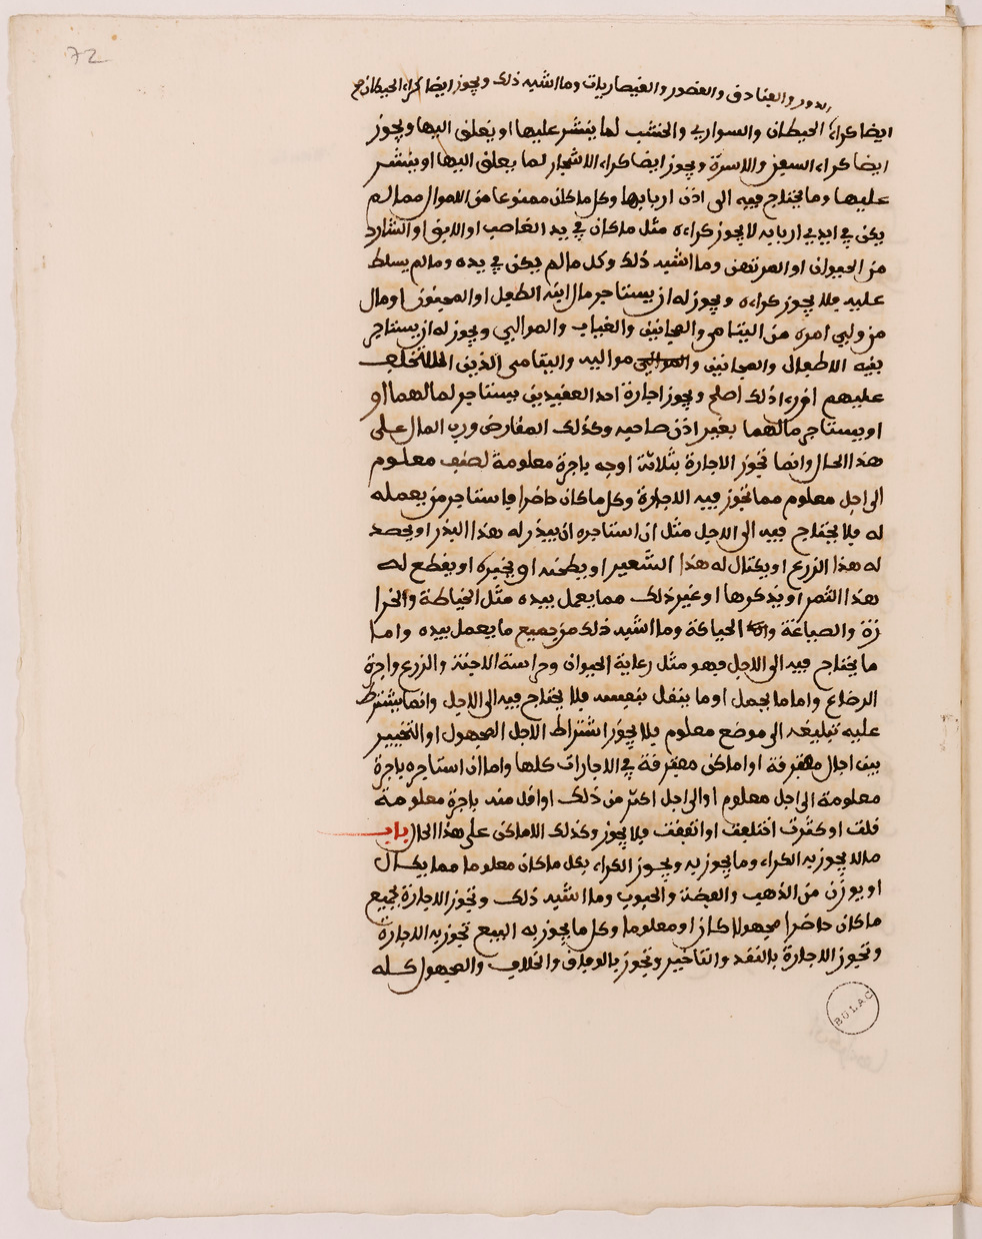 72
الدور والفنادق والقصور والقيصاريات وما اشبه ذلك ويجوز ايضا كراء الحيطان
ايضا كراء الحيطان والسواري والخشب لما ينشر عليها او يعلق اليها ويجوز
ايضا كراء السفن والاسرة ويجوز ايضا كراء الاشجار لما يعلق اليها او ينشر
عليها وما يحتاج فيه الى اذن اربابها وكل ما كان ممنوعا من الاموال مما لم
يكن في ايدي اربابه لا يجوز كراءه مثل ما كان في يد الغاصب او الابق او الشارد
من الحيوان او المرتهن وما اشبه ذلك وكل ما لم يكن في يده وما لم يسلط
عليه فلا يجوز كراءه ويجوز له ان يستاجر مال ابنه الطفل او المجنون او مال
من ولي امره من اليتامى والمجانين والغياب والموالي ويجوز له ان يستاجر
بقية الاطفال والمجانين مواليه واليتامى الذين استخلف
عليهم اذا رءا ذلك اصلح ويجوز اجارة احد العقيدين يستاجر لمالهما او
او يستاجر مالهما بغير اذن صاحبه وكذلك المقارض ورب المال على
هذا الحال وانما تجوز الاجارة بثلاثة اوجه باجرة معلومة لصنف معلوم
الى اجل معلوم مما تجوز فيه الاجارة وكل ما كان حاضرا فاستاجر من يعمله
له فلا يحتاج فيه الى الاجل مثل ان استاجره ان يبذر له هذا البذر او يحصد
له هذا الزرع او يكتال له هذا الشعير او يطحنه او يخبزه او يقطع له
هذا الثمر او يذكرها او غير ذلك مما يعمل بيده مثل الخياطة والخرا
زة والصباغة والحياكة وما اشبه ذلك من جميع ما يعمل بيده واما
ما يحتاج فيه الى الاجل فهو مثل رعاية الحيوان وحراسة الاجنة والزرع واجرة
الرضاع واما ما يحمل او ما ينقل بنفسه فلا يحتاج فيه الى الاجل وانما يشترط
عليه تبليغه الى موضع معلوم فلا يجوز اشتراط الاجل المجهول او التخيير
بين اجال مفترقة او اماكن مفترقة في الاجارات كلها واما ان استاجره باجرة
معلومة الى اجل معلوم او الى اجل اكثر من ذلك او اقل منه باجرة معلومة
قلت او كثرت اختلفت او اتفقت فلا يجوز وكذلك الاماكن على هذا الحال باب
ما لا يجوز به الكراء وما يجوز به ويجوز الكراء بكل ما كان معلوما مما يكال
او يوزن من الذهب والفضة والحبوب وما اشبه ذلك وتجوز الاجارة بجميع
ما كان حاضرا مجهولا كان او معلوما وكل ما يجوز به البيع تجوز به الاجارة
وتجوز الاجارة بالنقد والتاخير وتجوز بالوفاق والخلاف والمجهول كله
BULAC